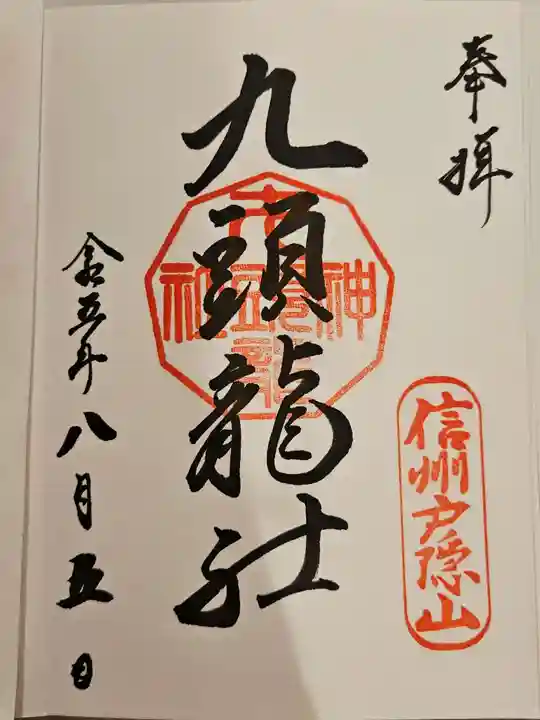 奉拝
信州戸隠山
九頭龍社
令和五年八月五日